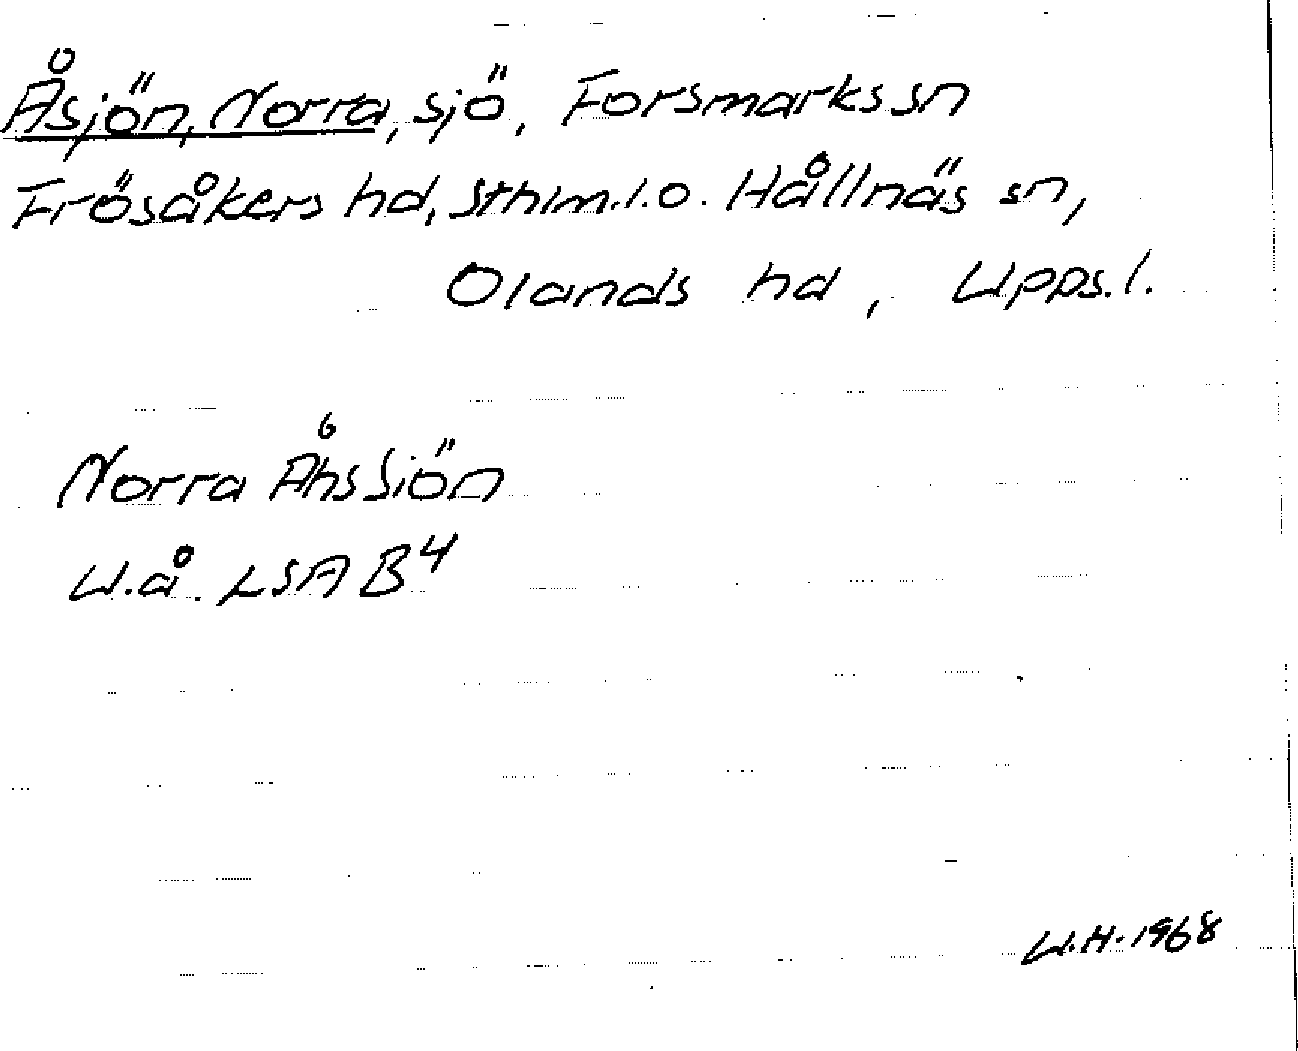 Åsjön, Norra, sjö, Forsmarks sn
Frösåkers hd, Sthlm.l.o. Hållnäs sn,
Olands hd, Upps.l.
Norra ÅhsSiön
U.å. LSA B4
U.H. 1968